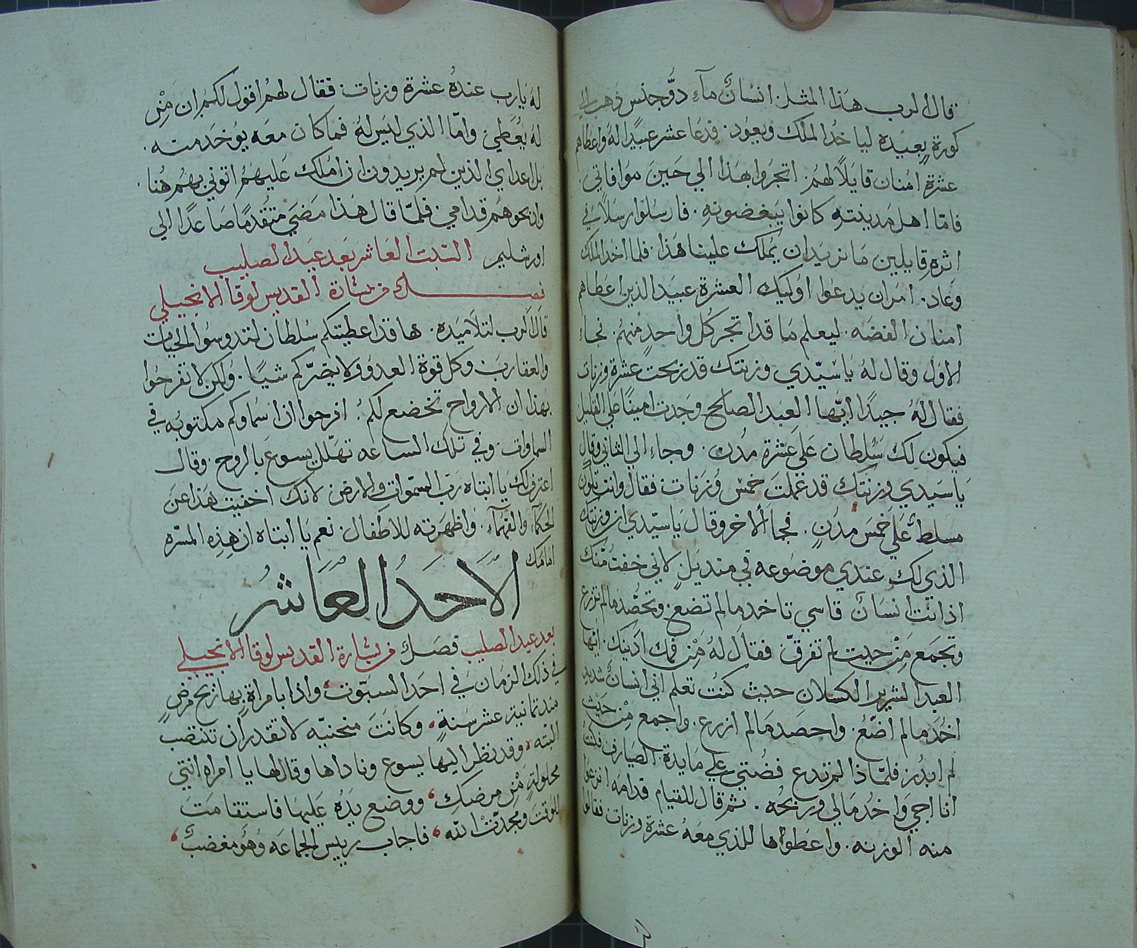 قال الرب هذا المثل. انسان مآء دوُّ جنس ذهب الي
كورة بعيدة لياخد الملك ويعود. فدعا عشر عبيدا له واعطاهم
عشرة امنان قايلًا لهم. اتجروا بهذا الي حين موافاتي.
فامّا اهل مدينته كانوا يبغضونه. فارسلوا رسلاً في
اثره قايلين ما نريد ان يملك علينا هذا. فلما اخد الملك
وعاد. امر ان يدعوا اوليك العشرة عبيد الذين اعطاهم
امنان الفضه. ليعلم ما قد اتجر كل واحدٍ منهم. فجاء
الاول وقال له ياسيّدي وزنتك قد ربحت عشرة وزنات
فقال لهُ جيدًا ايّها العبد الصالح وجدت امينًا علي القليل
فيكون لك سُلطان عَلي عشرة مدن. وجاء الي الثاني وقال
ياسيدي وزنتك قد عملت خمس وزنات. فقال وانت تكون
مسلط علي خمس مدنٍ. فجا الاخر وقال ياسيّدي ان وزنتك
الذي لك عندي موضوعه في منديلٍ لاني خفتُ منك
اذ انت انسانٌ قاسي تاخد مالم تضع. وتحصد مالم تزرع
وتجمع من حيت لم تفرقّ. فقال لهُ من فمك ادينك ايها
العبد الشرير الكسلان حيث كنت تعلم اني انسانٌ شديد
اخد مالم اضع. واحصد مالم ازرع. واجمع من حيت
لم ابدر فلمّاذا لم تدع فضتي علي مايدة الصيارف فكنت
انا اجي واخد مالي وربحهُ. ثم قال للقيام قدامه انزعوا
منه الوزنه. واعطوها للذي معهُ عشرة وزنات فقالوا
له يارب عنده عشرة وزنات. فقال لهم اقول لكم ان من
له يعطي وامّا الذي ليس له فما كان معه يوخد منه.
بل اعداي الذين لم يريدون ان املك عليهم اتوني بهم هنا
وادبحوهم قدامي. فلمّا قال هذا مضي متقدمًا صاعدًا الي
اورشليم السَبت العاشر بعد عيد الصليب
فصل من بشارة القديس لوقا الانجيلي
قال الرب لتلاميده. ها قد اعطيتكم سلطان لتدوسوا الحيات
والعقارب وكل قوة العدو ولا يضرّكم شيًا. ولكن لا تفرحوا
بهذا ان الارواح تخضع لكم. افرحوا ان اسماوكم مكتوبه في
السماوات. وفي تلك الساعه تهلّل يسوع بالروح وقال
اعترف لك يا ابتاه رب السموات والارض لانك اخفيت هذا عن
الحكمآء والفهمآء واظهرته للاطفال. نعم يا ابتاه ان هذه المسّره
امامك
الاَحَدُ العَاشرُ
بعد عيد الصليب فصل من بشارة القديس لوقا الانجيلي
في ذلك الزمان في احد السبوت. واذا بامراة بها ريح مرضٍ
مند تمانية عشر سنةٍ، وكانت منحنيه لا تقدر ان تنتصب
البته، وقد نظر اليها يسوع وناداها وقال لها يا امراه انتي
محلولة من مرضك، ووضع يدهُ عليها فاستقامت
للوقت ومجدت الله، فاجاب ريس الجماعه وهو مغضبٌ،